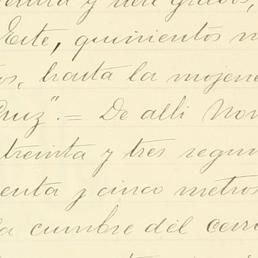 y seis grados,
Este, quinientos
hasta la mojone
Cruz". = De alli Nor
treinta y tres segun
enta y cinco metros
la cumbre del cerr